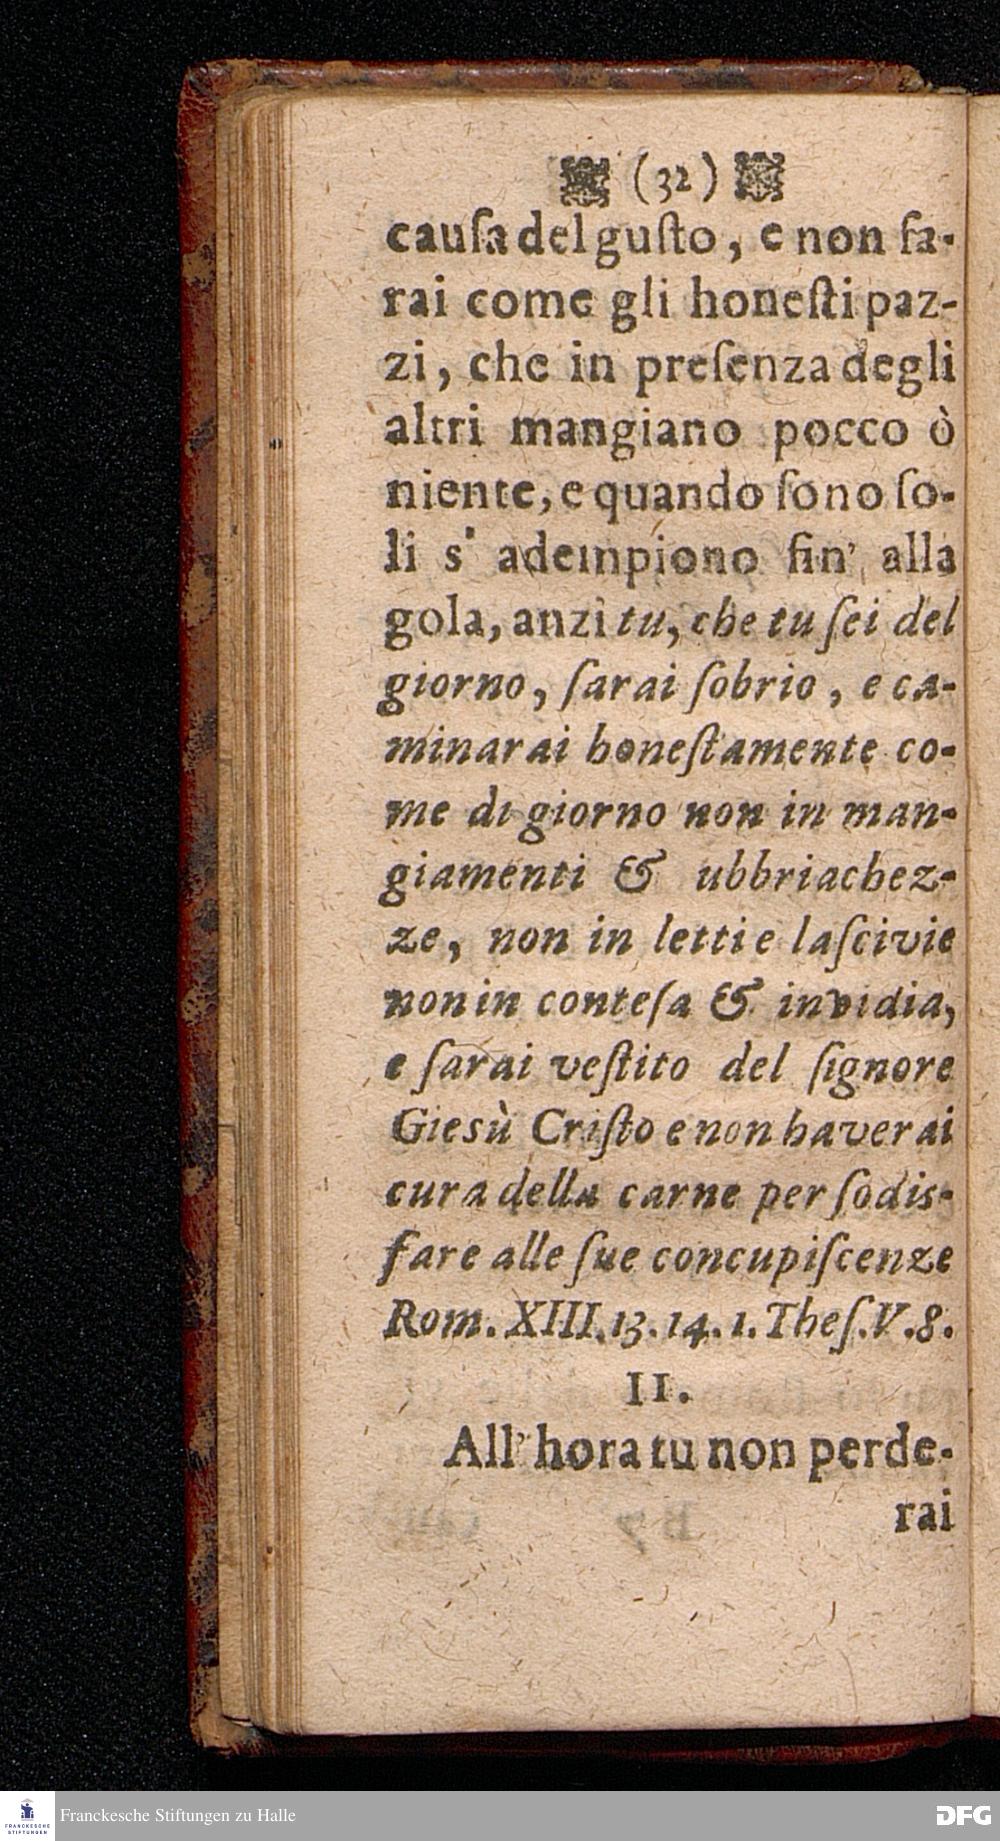 (32)
cauſa del guſto, e non fa-
rai come gli honeſti paz-
zi, che in preſenza degli
altri mangiano pocco ò
niente, e quando ſono ſo-
li s' adempiono fin' alla
gola, anzi tu, che tu ſei del
giorno, ſarai ſobrio, e ca-
minarai honeſtamente co-
me di giorno non in man-
giamenti & ubbriachez-
ze, non in letti e laſcivie
non in conteſa & invidia,
e ſarai veſtito del ſignore
Giesù Criſto e non haverai
cura della carne per ſodis-
fare alle ſue concupiſcenze
Rom. XIII. 13. 14. 1. Theſ. V. 8.
II.
All' hora tu non perde-
rai
FRANCKESCHE STIFTUNGEN
Franckesche Stiftungen zu Halle
DFG